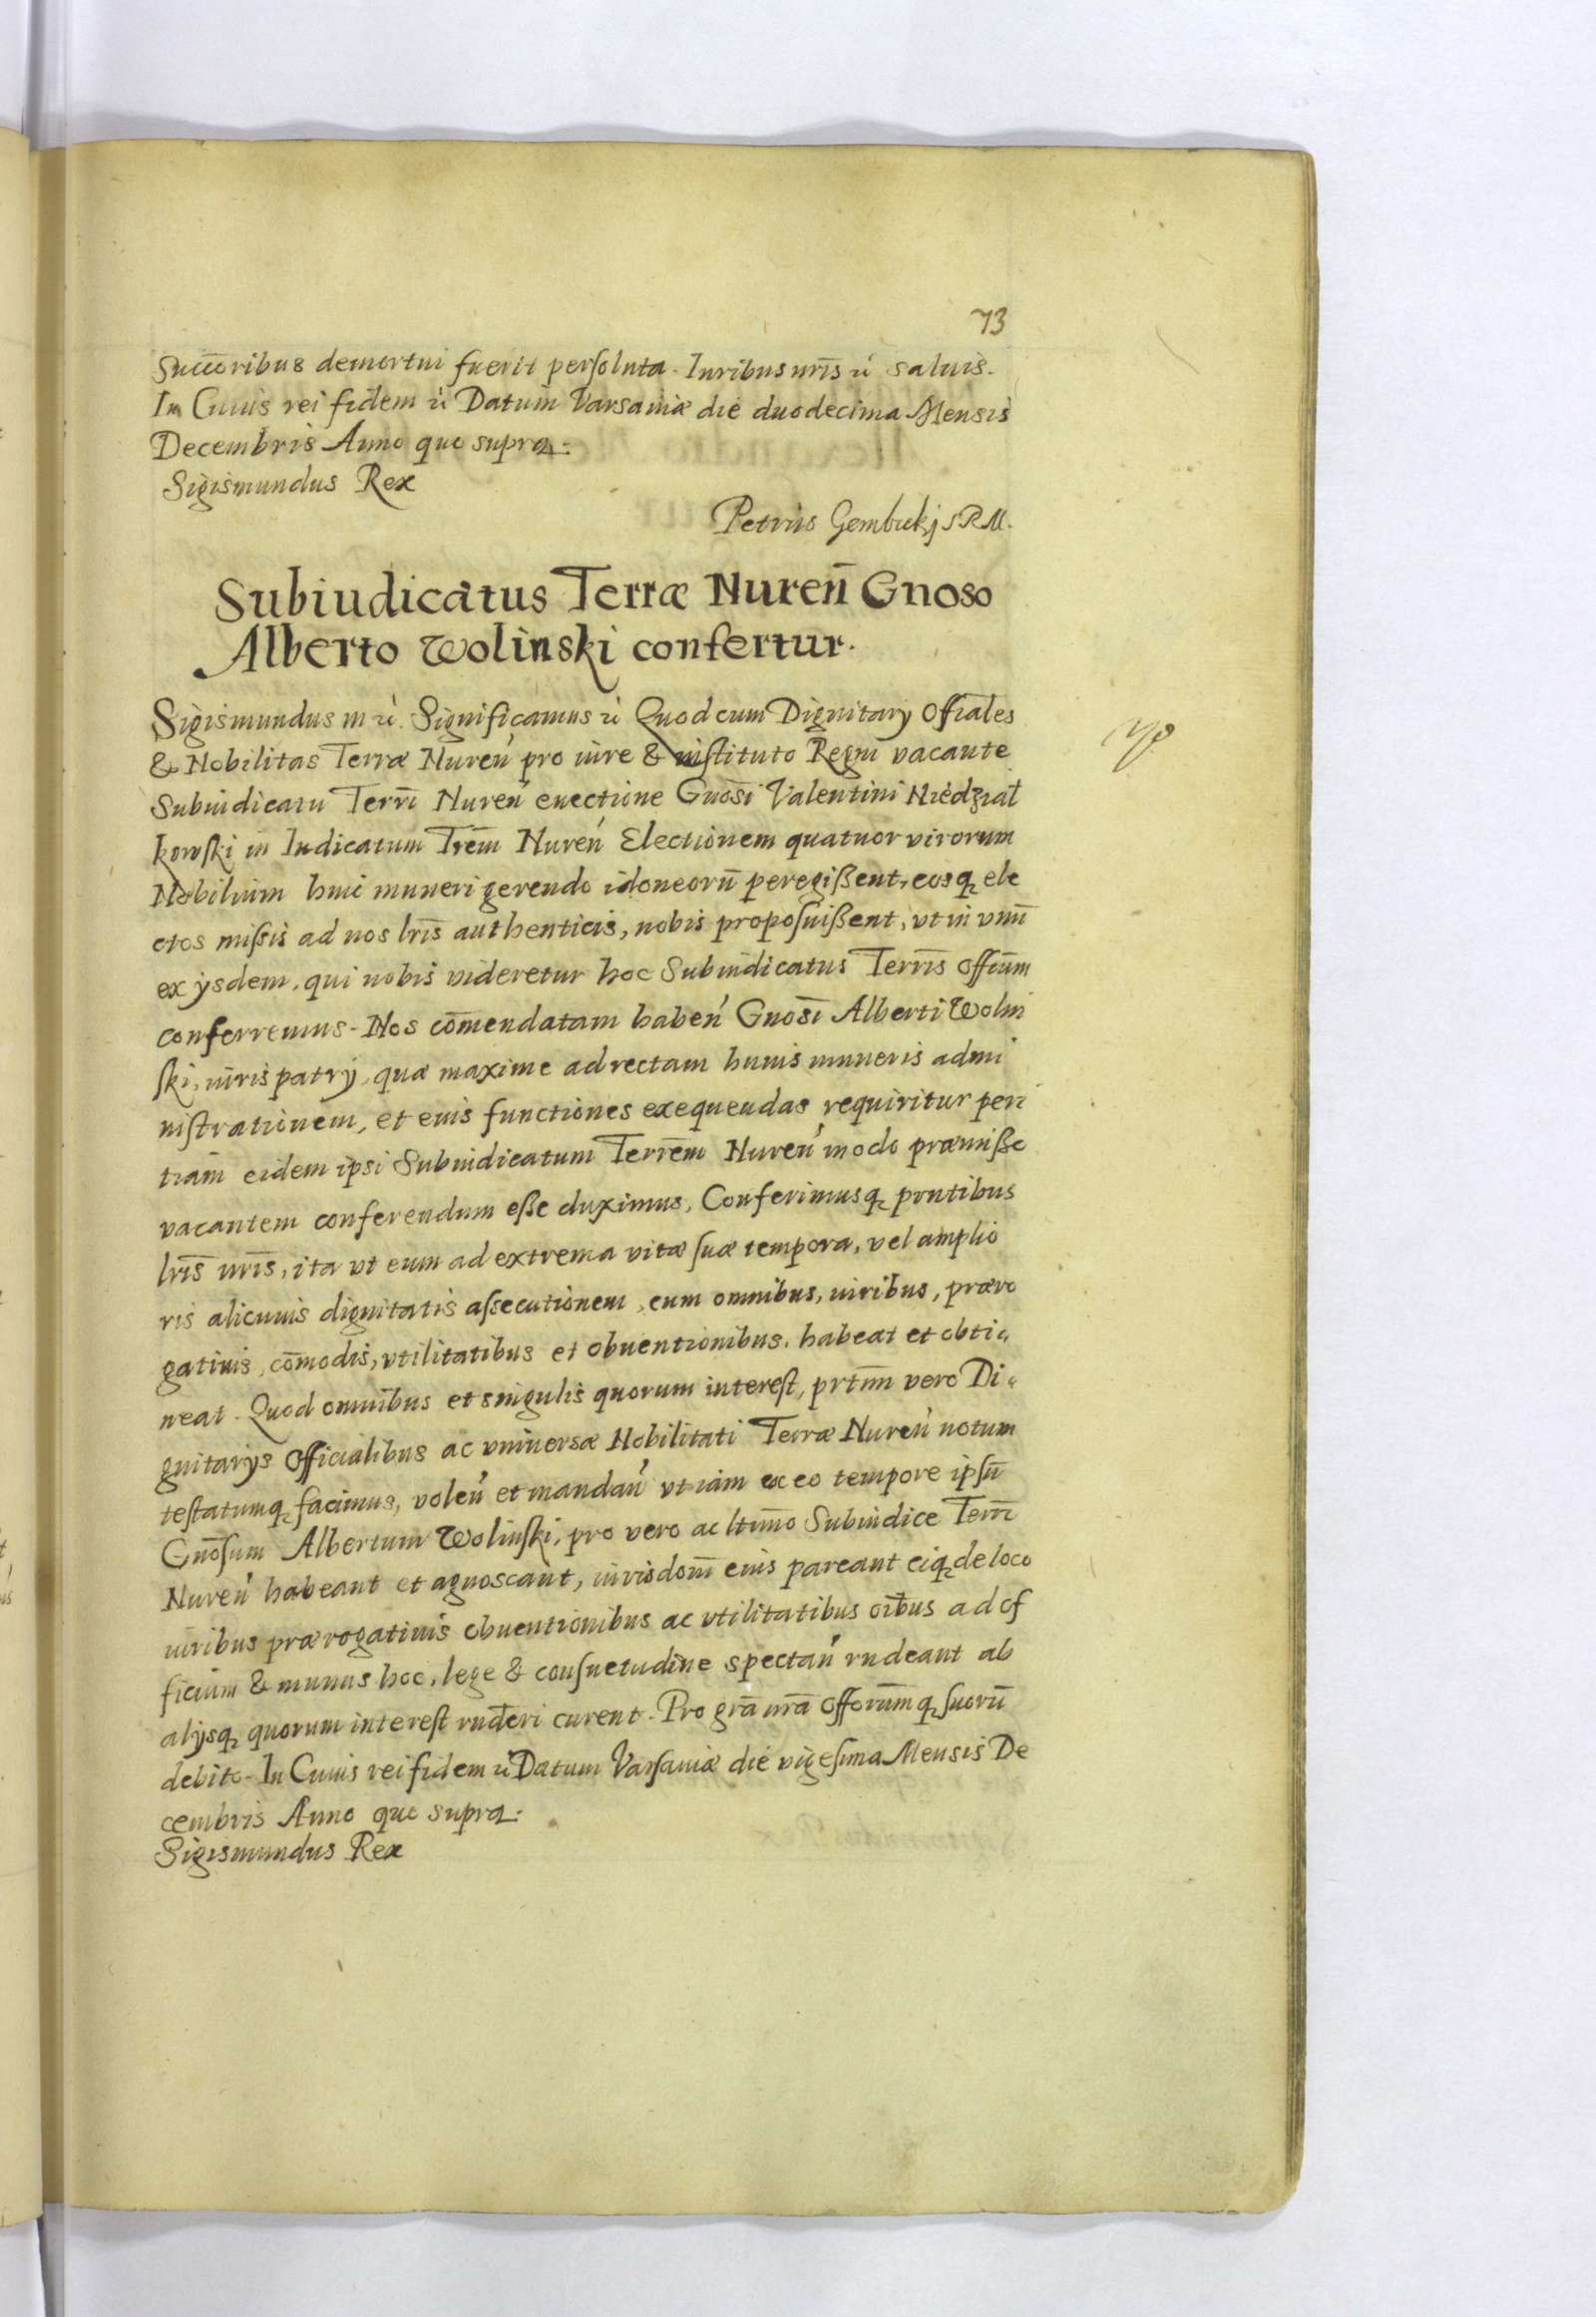 73
Succōribus demortui fuerit persoluta. Iuribus nrīs ꝛc̀ saluis.
In Cuius rei fidem ꝛc̀ Datum Varsauiæ die duodecima Mensis
Decembris Anno quo supra.
Sigismundus Rex
Petrus Gembickj SRM.
Subiudicatus Terræ Nureñ Gnoso
Alberto Wolinski confertur.
Sigismundus III ꝛc̀. Significamus ꝛc̀ Quod cum Dignitarÿ Offiāles
& Nobilitas Terræ Nureń pro iure & instituto Regni vacante
Subiudicatu Terrī Nureń euectione Gnōsi Valentini Niedzial
kowski in Iudicatum Trēm Nureń Electionem quatuor virorum
Nobilium huic muneri gerendo idoneorū peregißent, eosq ele
ctos missis ad nos lrīs authenticis, nobis proposuißent, vt in vnū
ex ÿsdem, qui nobis videretur hoc Subiudicatus Terrīs offiūm
conferremus. Nos cōmendatam habeń Gnosī Alberti Wolin
ski, iuris patrÿ, quæ maxime ad rectam huius muneris admi
nistrationem, et eius functiones exequendas requiritur peri
tiam eidem ipsi Subiudicatum Terrēm Nureń modo præmißo
vacantem conferendum eße duximus, Conferimusq pntibus
lrīs nrīs, ita vt eum ad extrema vitæ suæ tempora, vel amplio
ris alicuius dignitatis assecutionem, cum omnibus, iuribus, præro
gatiuis, cōmodis, vtilitatibus et obuentionibus, habeat et obti„
neat. Quod omnibus et singulis quorum interest, prtīm vero Di„
gnitarÿs Officialibus ac vniuersæ Nobilitati Terræ Nureń notum
testatumq facimus, voleń et mandań vt iam ex eo tempore ipsū
Gnōsum Albertum Wolinski, pro vero ac ltimo Subiudice Terrī
Nureń habeant et agnoscant, iurisdom̄ eius pareant eiq de loco
iuribus prærogatiuis obuentionibus ac vtilitatibus oībus ad of
ficium & munus hoc, lege & consuetudine spectań rndeant ab
alÿsq quorum interest rnderi curent. Pro grā nrā offorūmq suorū
debito. In Cuius rei fidem ꝛc̀ Datum Varsauiæ die vigesima Mensis De
cembris Anno quo supra.
Sigismundus Rex